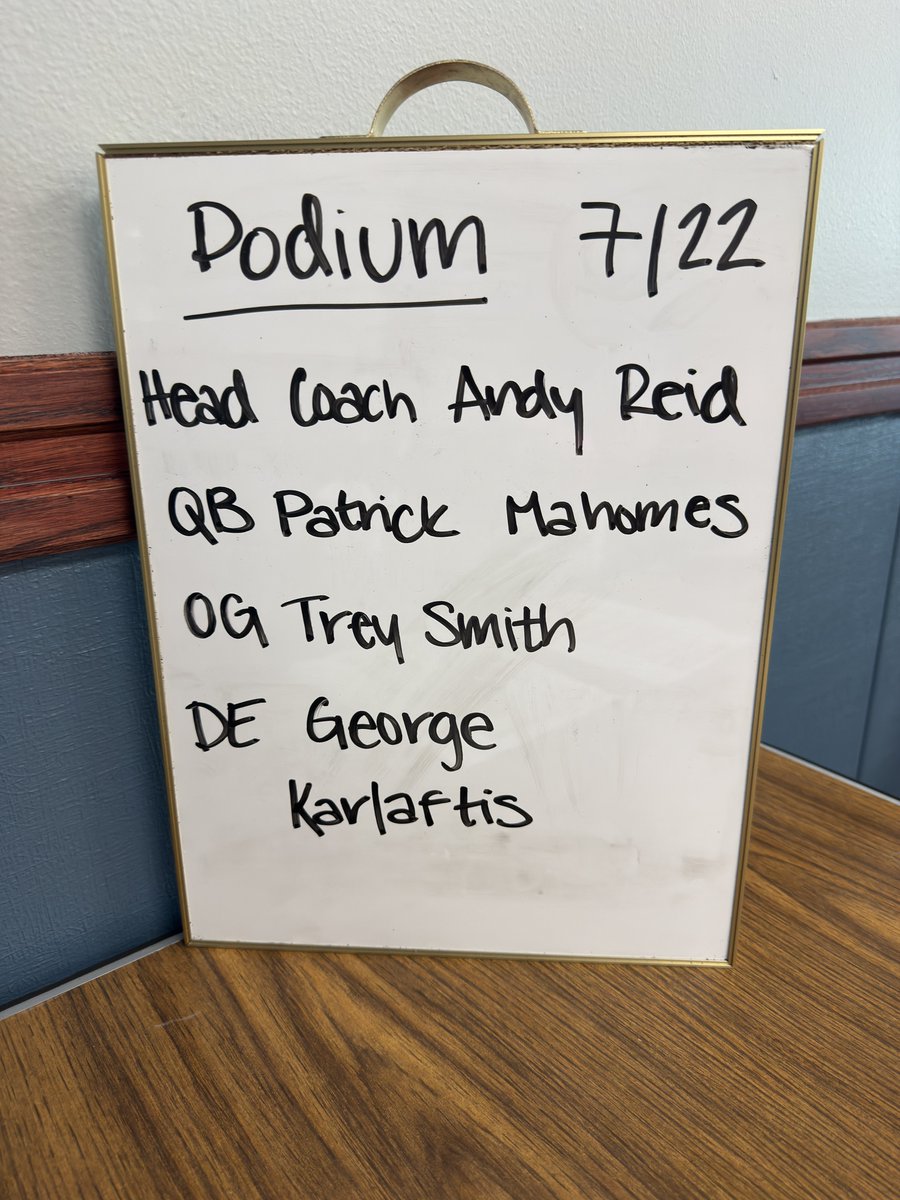 Podium 7/22
Head Coach Andy Reid
QB Patrick Mahomes
OG Trey Smith
DE George
Karlaftis